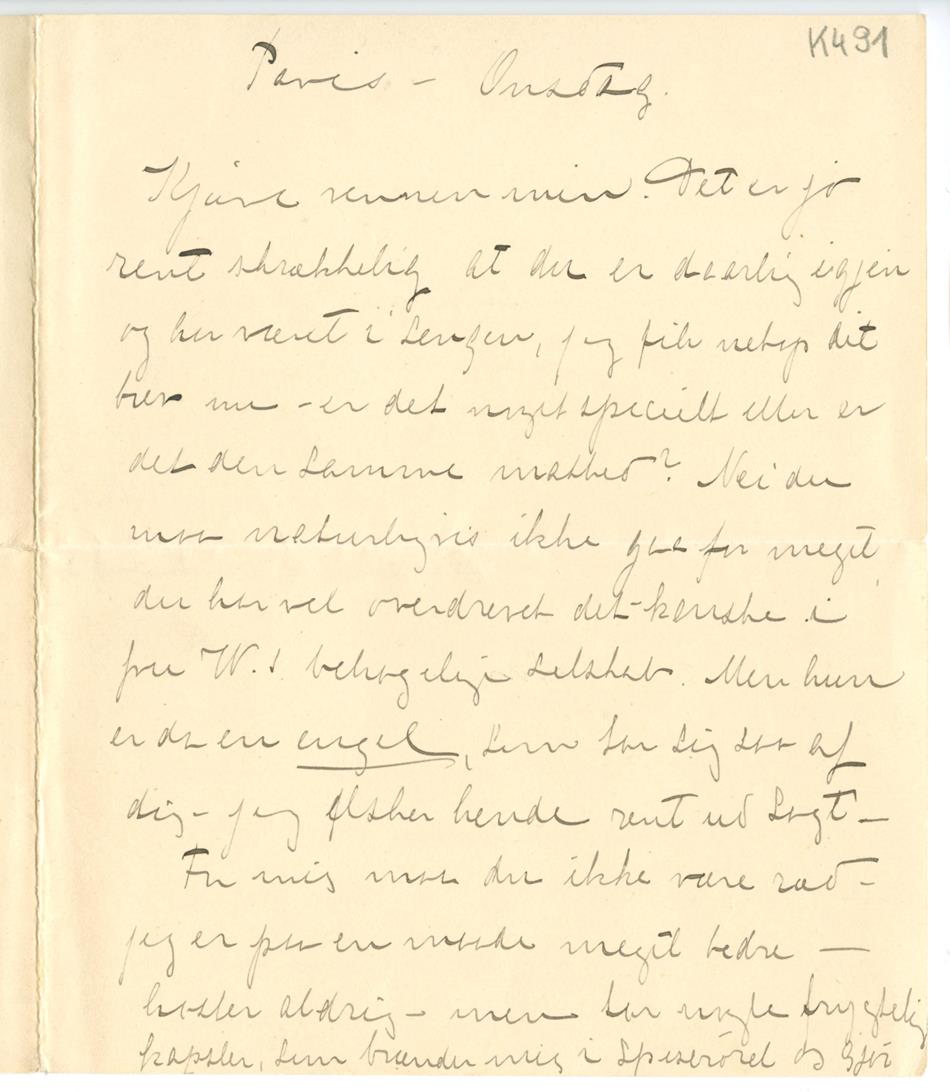 K491
Paris - Onsdag.
Kjære vennen min. Det er jo
rent skrækkelig at du er daarlig igjen
og har været i sengen, jeg fik netop dit
brev nu - er det noget specielt eller er
det den samme mathed? Nei du
maa naturligvis ikke gaa for meget
du har vel overdrevet det - kanske i
fru W.s behagelige selskab. Men hun
er da en engel, som tar sig saa af
dig - jeg elsker hende rent ud sagt -
For mig maa du ikke være ræd -
jeg er paa en maade meget bedre -
hoster aldrig - men tar nogle frygtelig
kapsler, som brænder mig i spiserøret og gjør